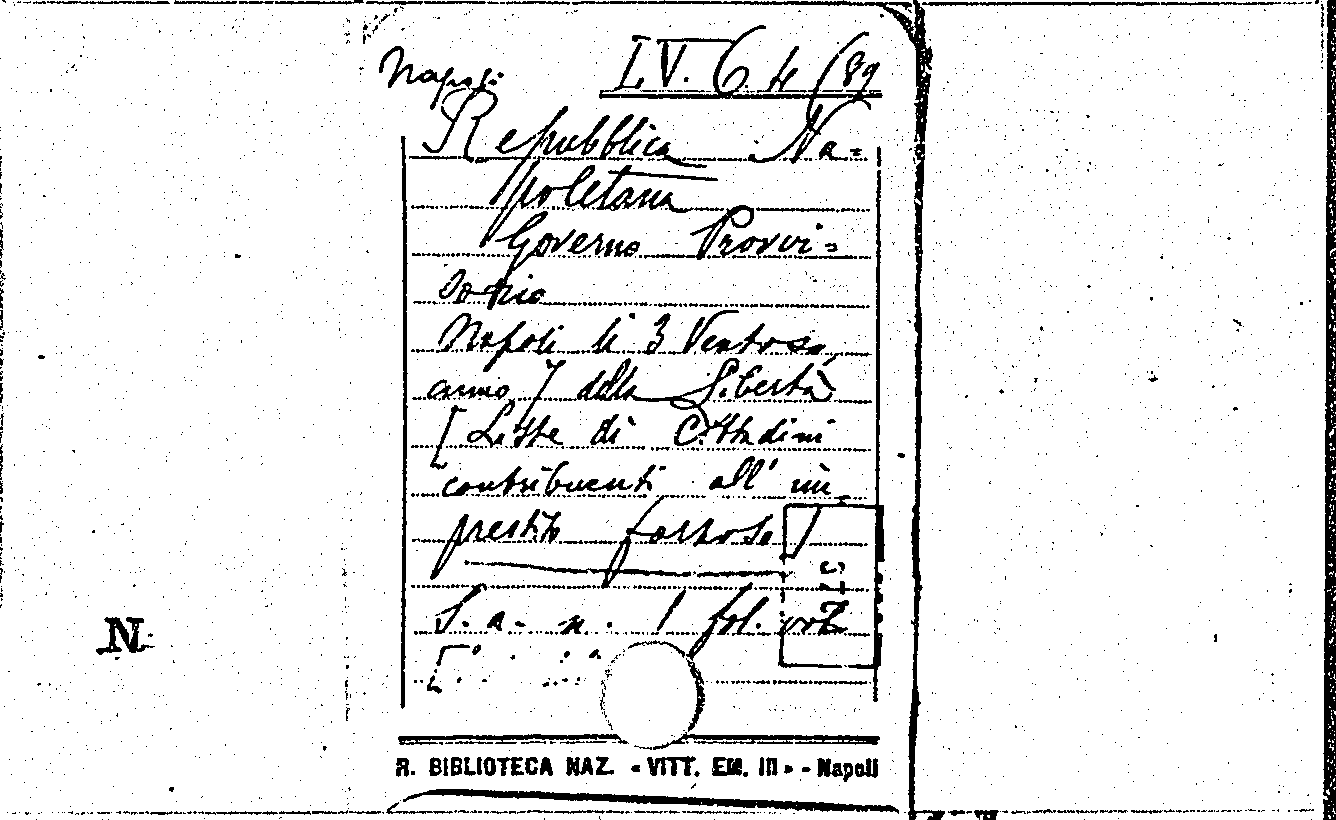 Napoli LV. 6 4 (89
Repubblica Na=
poletana
Governo Provvi=
sorio
Napoli li 3 Ventoso,
anno 7 della Libertà
[Liste di Cittadini
contribuenti all'im=
prestito forzoso]
S. a. n. 1 fol. vol.
N
R. BIBLIOTECA NAZ. « VITT. EM. III » - Napoli